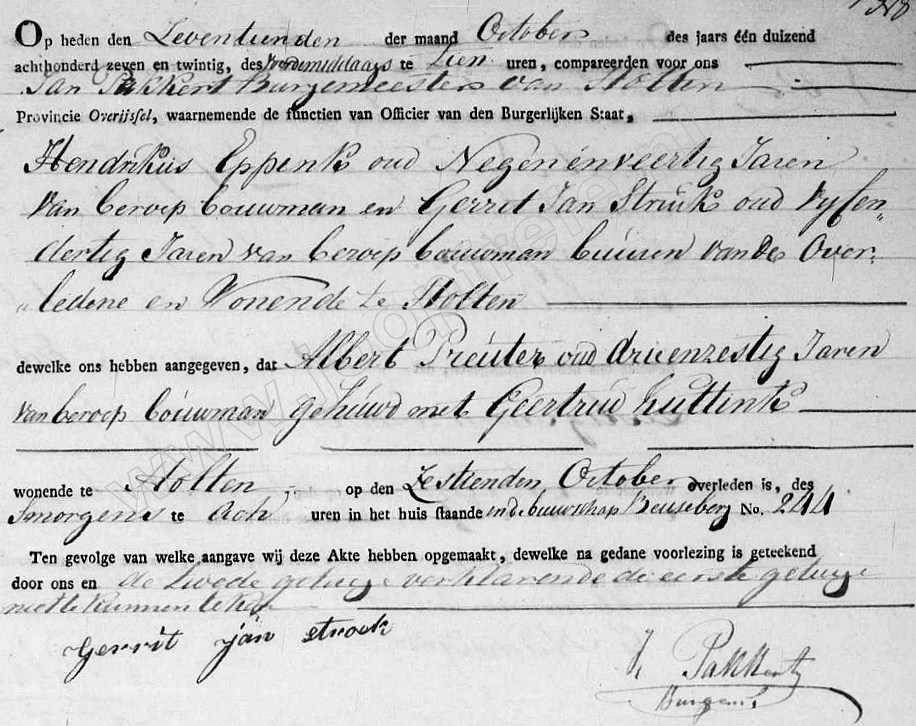 Op heden den Zeventienden der maand October des jaars één duizend
achthonderd zeven en twintig, des voordemiddaags te Tien uren, compareerden voor ons
Jan Pakkert Burgemeester van Holten
Provincie Overijssel, waarnemende de functien van Officier van den Burgerlijken Staat,
Hendrikus Eppenk oud Negen en veertig Jaren
van beroep bouwman en Gerret Jan Struik oud vyfen-
dertig Jaren van beroep bouwman buuren van de Over-
ledene en Wonende te Holten
dewelke ons hebben aangegeven, dat Albert Preuter oud drieenzestig Jaren
van beroep bouwman gehuwd met Geertruid
wonende te Holten op den Zestienden October overleden is, des
smorgens te Ach uren in het huis staande in de buurschap Beuseberg No. 244
Ten gevolge van welke aangave wij deze Akte hebben opgemaakt, dewelke na gedane voorlezing is geteekend
door ons en de twede getuige verklarende de eerste getuige
niet te kunnen
gerrit jan strook
J Pakkert
Burgem
www.jgoptreter.nl